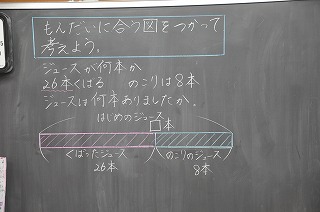 もんだいに合う図をつかって
考えよう。
ジュースが何本か
26本くばる のこりは8本
ジュースは何本ありましたか。
はじめのジュース
□本
くばったジュース のこりのジュース
26本 8本